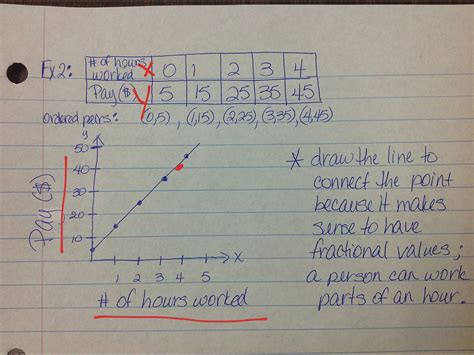 Ex2:
# of hours worked x 0 1 2 3 4
Pay ($) y 5 15 25 35 45
ordered pairs: (0,5), (1,15), (2,25), (3,35), (4,45)
y
50
40
30
20
10
Pay ($)
1 2 3 4 5 x
# of hours worked
* draw the line to
connect the point
because it makes
sense to have
fractional values;
a person can work
parts of an hour.